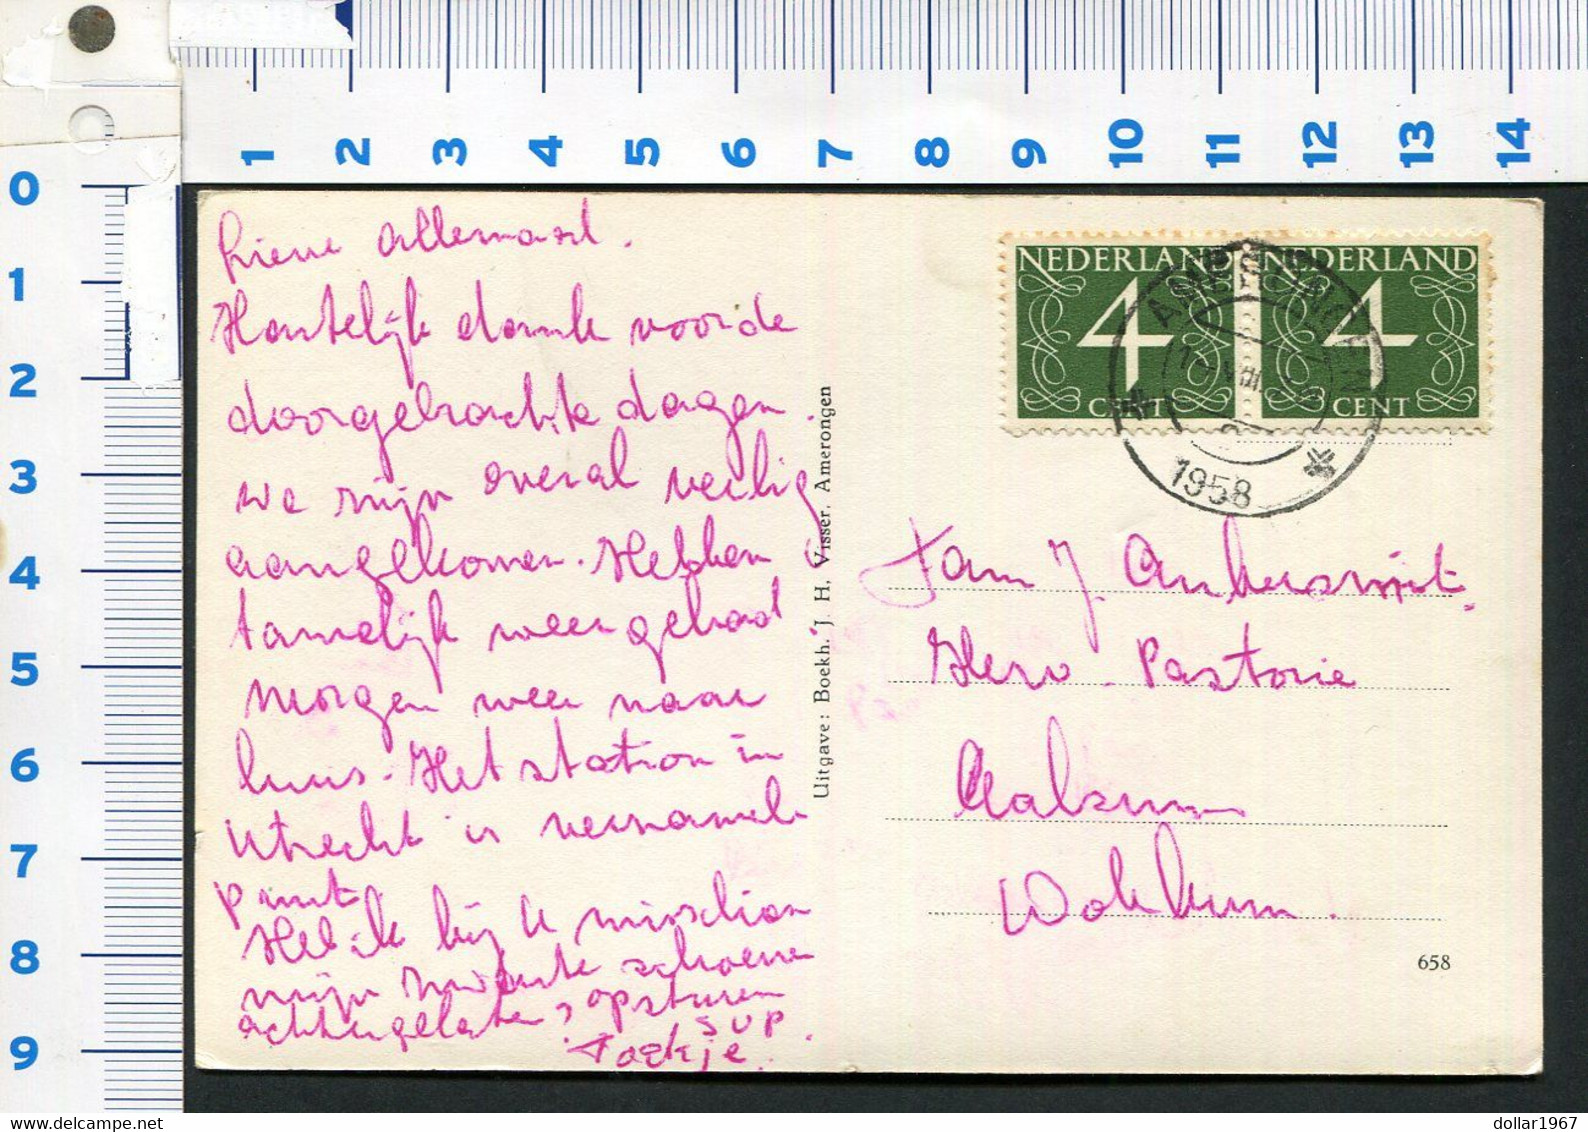 1 2 3 4 5 6 7 8 9 10 11 12 13 14
0
1
2
3
4
5
6
7
8
9
Lieve Allemaal.
Hartelijk dank voor de
doorgebrachte dagen.
We zijn overal veilig
aangekomen. Hebben
tamelijk weer gehad
Morgen weer naar
huis. Het station in
Utrecht is
punt.
Heb ik bij U misschien
mijn zwarte schoenen
achtergelaten? opsturen
svp
Toekje.
Uitgave: Boekh. J. H. Visser, Amerongen
NEDERLAND NEDERLAND
4 4
CENT CENT
AMERONGEN
1958
Fam J.
Herv. Pastorie
Aalsum
Dokkum.
658
dollar1967